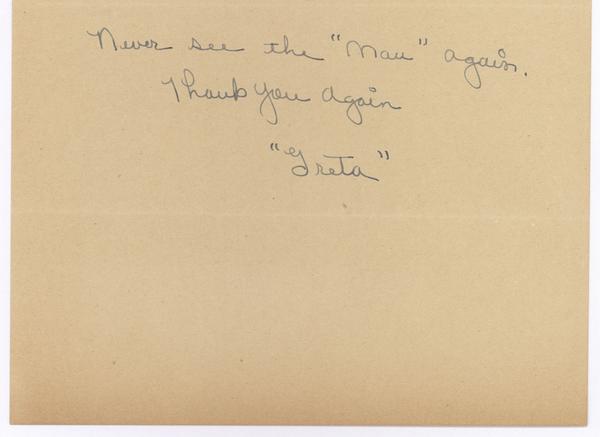 Never see the "Man" again.
Thank you again
"Greta"